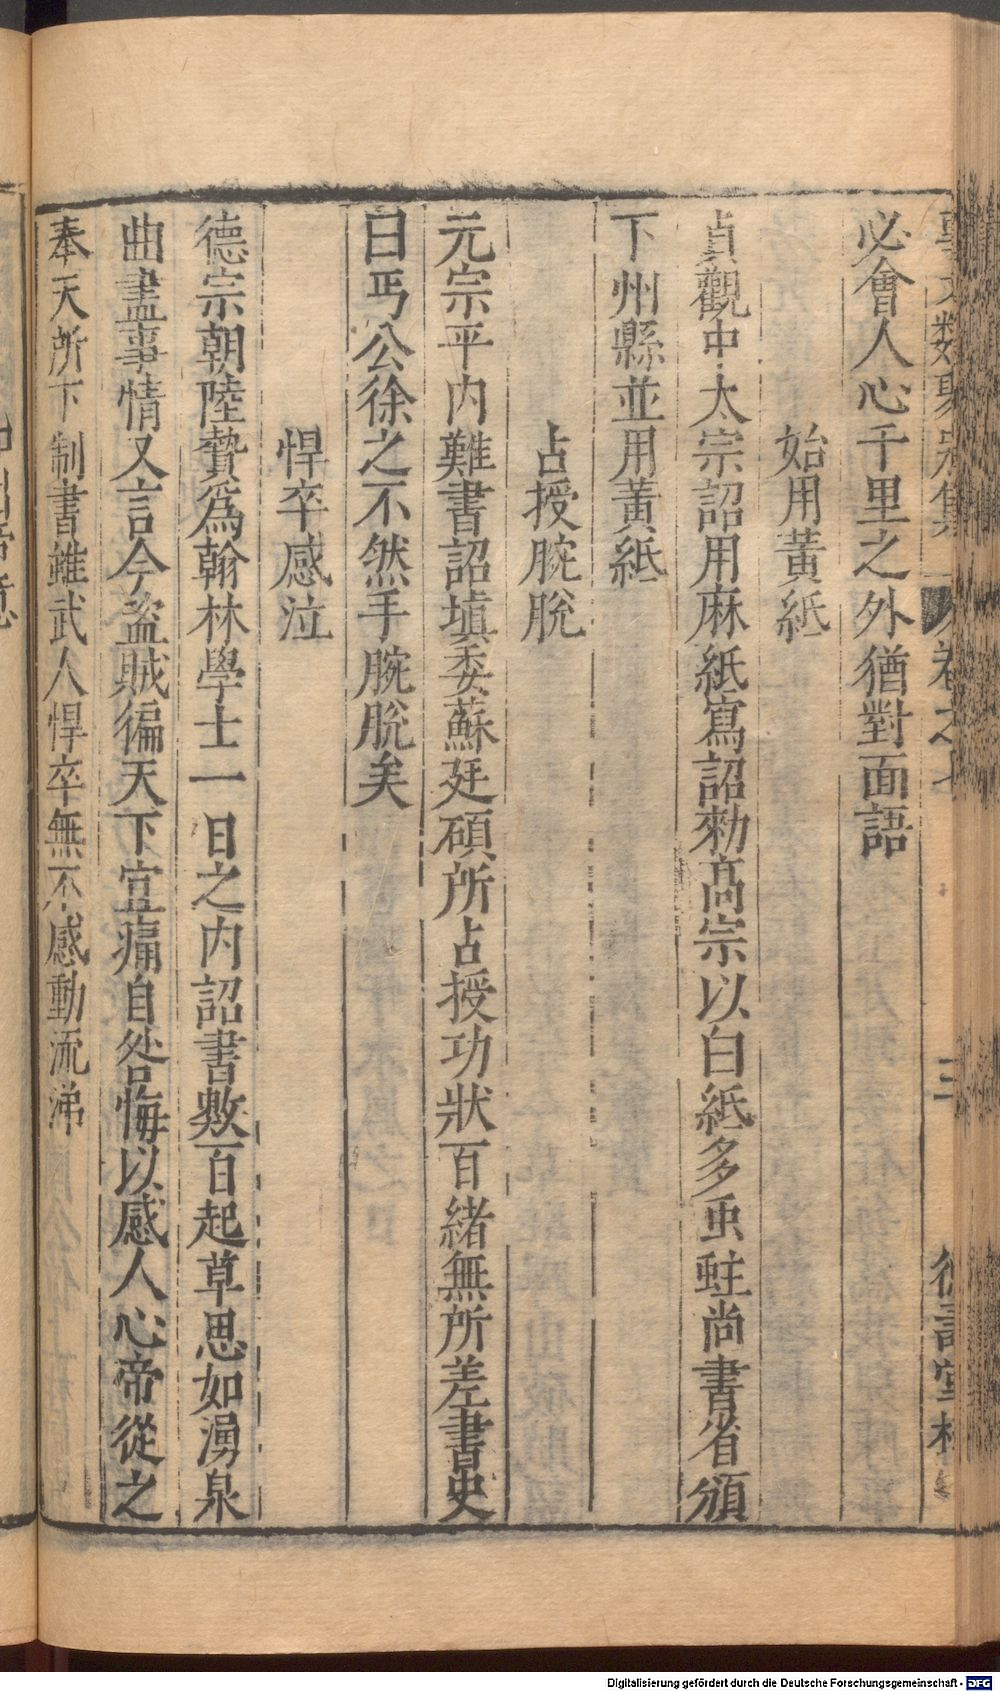 必會人心千里之外猶對面語
始用黃紙
貞觀中太宗詔用麻紙寫詔勑高宗以白紙多虫蛀尚書省頒
下州縣並用黃紙
占授腕脫
元宗平內難書詔塡委蘇廷碩所占授功狀百緒無所差書史
曰丐公徐之不然手腕脫矣
悍卒感泣
德宗朝陸贄爲翰林學士一日之內詔書數百起草思如湧泉
曲盡事情又言今盗賊徧天下宜痛自咎悔以感人心帝從之
奉天所下制書雖武人悍卒無不感動流涕
卷之七
三
Digitalisierung gefördert durch die Deutsche Forschungsgemeinschaft - DFG